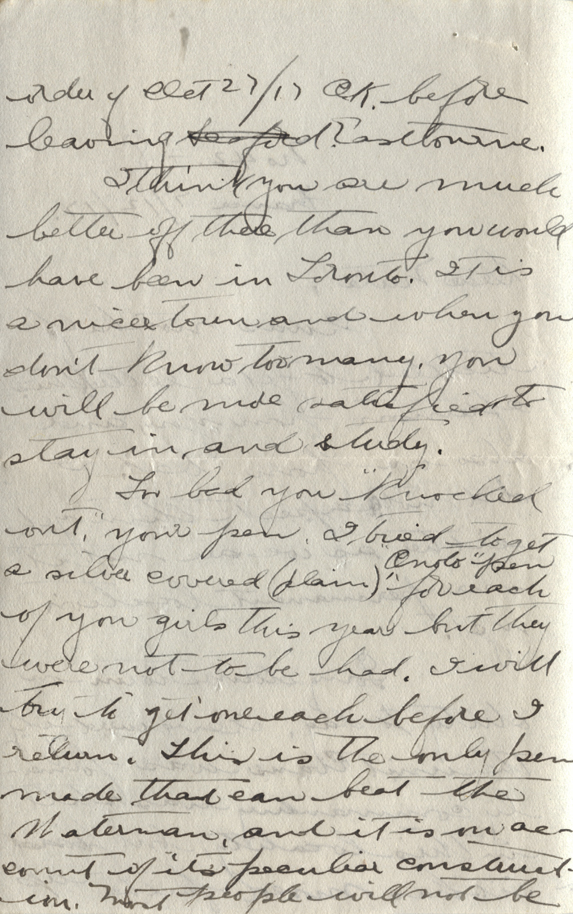 order of Oct 27/17 O.K. before
leaving Seaford Eastbourne.
I think you are much
better off there than you would
have been in Toronto. It is
a nicer town and when you
don't know too many, you
will be more satisfied to
stay in and study.
Too bad you "Knocked
out," your pen. I tried to get
a silver covered (plain) "Onoto" pen for each
of you girls this year but they
were not to be had. I will
try to get one each before I
return. This is the only pen
made that can beat the
Waterman, and it is on ac-
count of its peculiar construct-
ion. Most people will not be